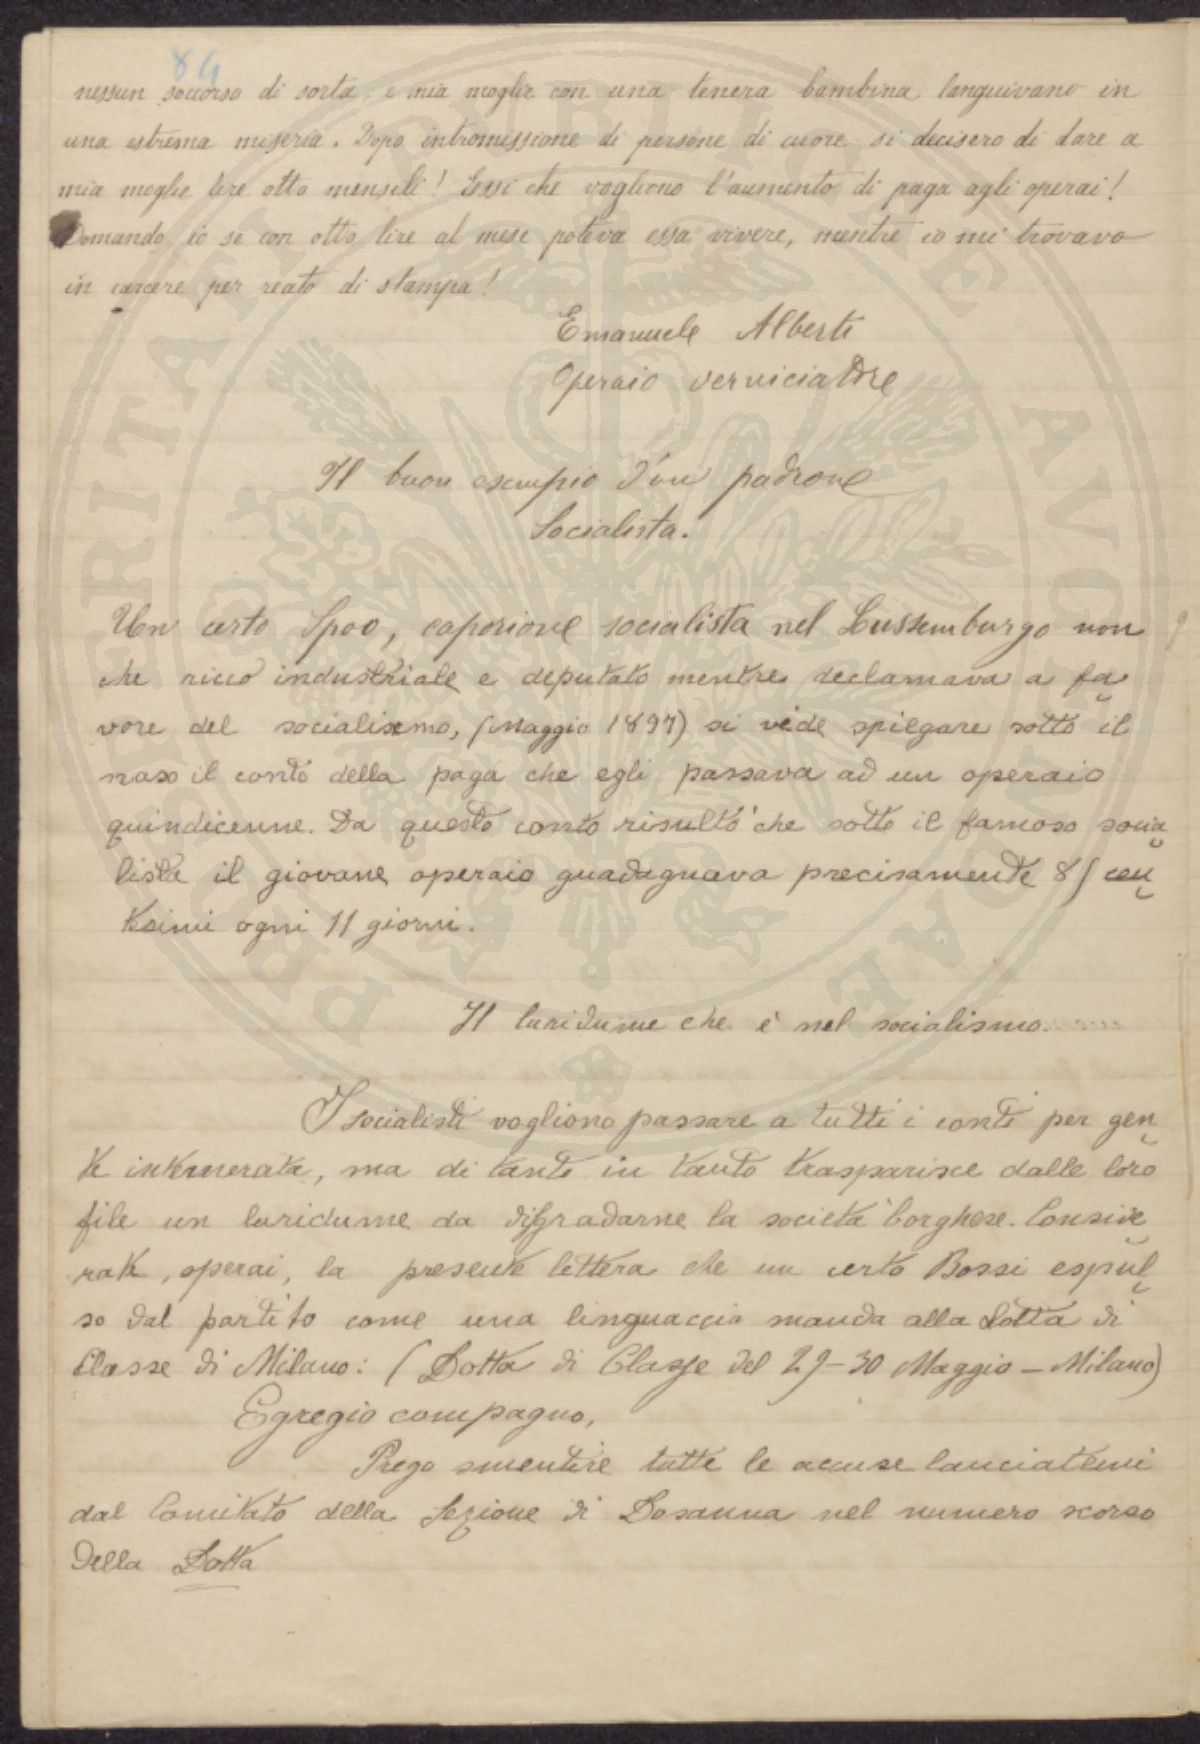 84
nessun soccorso di sorta, e mia moglie con una tenera bambina languivano in
una estrema miseria. Dopo intromissione di persone di cuore si decisero di dare a
mia moglie lire otto mensili! Essi che vogliono l'aumento di paga agli operai!
Domando io se con otto lire al mese poteva essa vivere, mentre io mi trovavo
in carcere per reato di stampa!
Emanuele Alberti
Operaio verniciatore
Il buon esempio d'un padrone
Socialista.
Un certo Spoo, caporione socialista nel Lussemburgo non
che ricco industriale e deputato mentre declamava a fa
vore del socialismo, (Maggio 1897) si vide spiegare sotto il
naso il conto della paga che egli passava ad un operaio
quindicenne. Da questo conto risultò che sotto il famoso socia
lista il giovane operaio guadagnava precisamente 85 cen
tesimi ogni 11 giorni.
Il luridume che è nel socialismo.
I socialisti vogliono passare a tutti i conti per gen
te intemerata, ma di tanto in tanto trasparisce dalle loro
file un luridume da disgradarne la società borghese. Conside
rate, operai, la presente lettera che un certo Bossi espul
so dal partito come una linguaccia manda alla Lotta di
Classe di Milano: (Lotta di Classe del 29-30 Maggio - Milano)
Egregio compagno,
Prego smentire tutte le accuse lanciatemi
dal Comitato della Sezione di Losanna nel numero scorso
della Lotta
PROSPERITATI PVBLICAE AVGENDAE